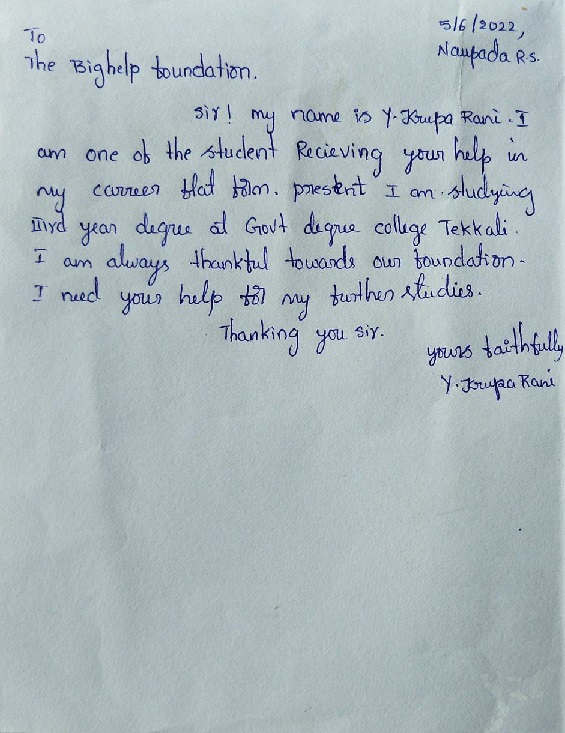 5/6/2022,
To
Naupada R.S.
The Bighelp foundation.
Sir! my name is Y. Krupa Rani. I
am one of the student Recieving your help in
my carreer flat form. present I am studying
IIIrd year degree at Govt degree college Tekkali.
I am always thankful towards our foundation.
I need your help for my further studies.
Thanking you sir.
yours faithfully
Y. Krupa Rani